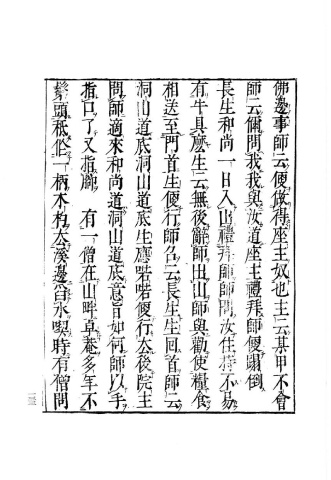 佛邊事師云便做得座主奴也主云某甲不會
師云儞問我我與汝道座主禮拜師便蹋倒
長生和尚一日入山禮拜師師問汝住持不易
有牛具麽生云無後辭師出山師與勸使糧食
相送至門首生便行師召云長生生回首師云
洞山道底洞山道底生應喏喏便行去後院主
問師適來和尚道洞山道底意旨如何師以手
指口了又指脚 有一僧在山畔卓菴多年不
鬀頭秪俗一柄木杓去溪邊舀水喫時有僧問
二三